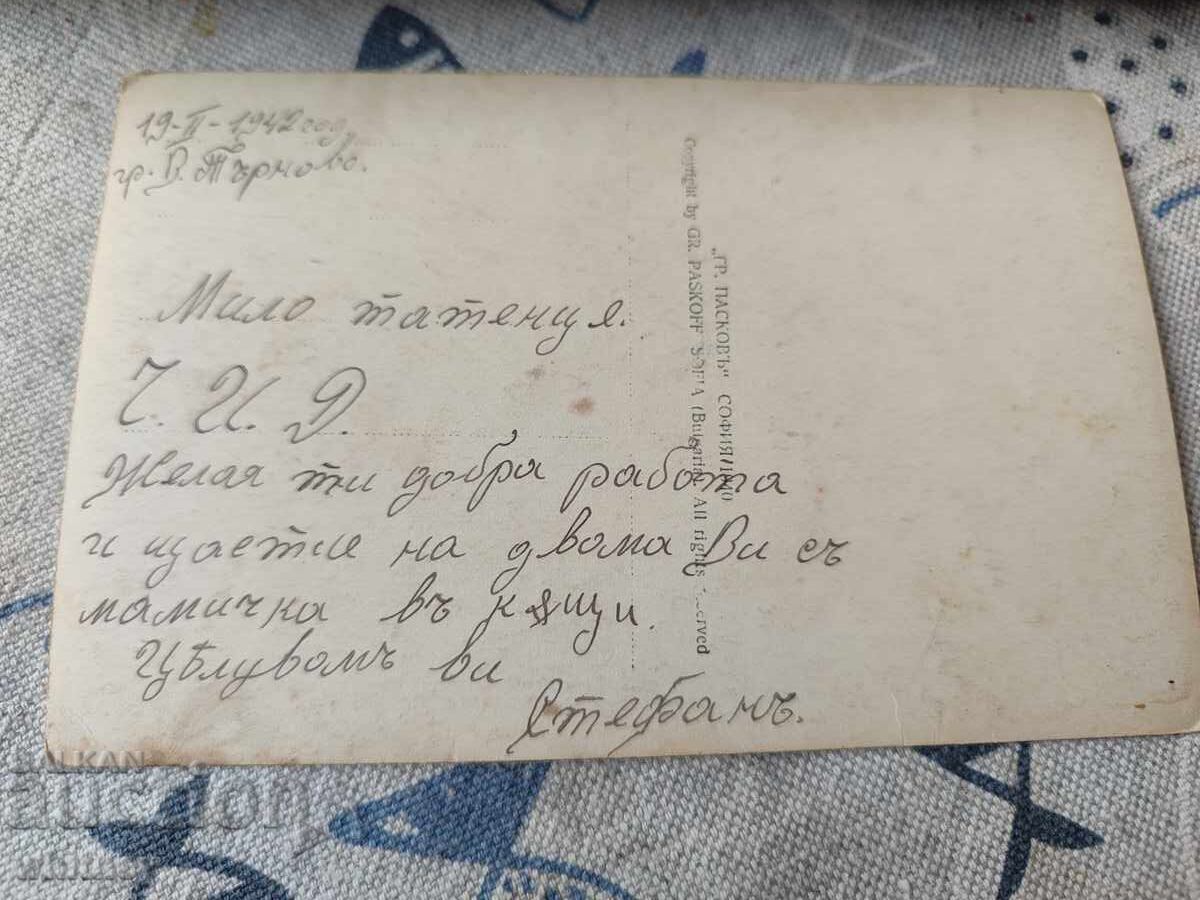 19-II-1942 год.
гр. В. Търново.
Мило татенце.
Ч. И. Д.
Желая ти добра работа
и щастие на двома Ви съ
мамичка въ кѫщи.
Цѣлувамъ ви
Стефанъ.
„ГР. ПАСКОВЪ" СОФИЯ/1940
Copyright by GR. PASKOFF SOFIA (Bulgaria) All rights reserved
BALKAN
auction